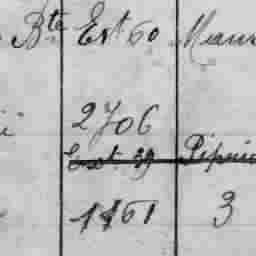 Bte Est 60 Maur
2706
Est 39 Pipni
1161 3